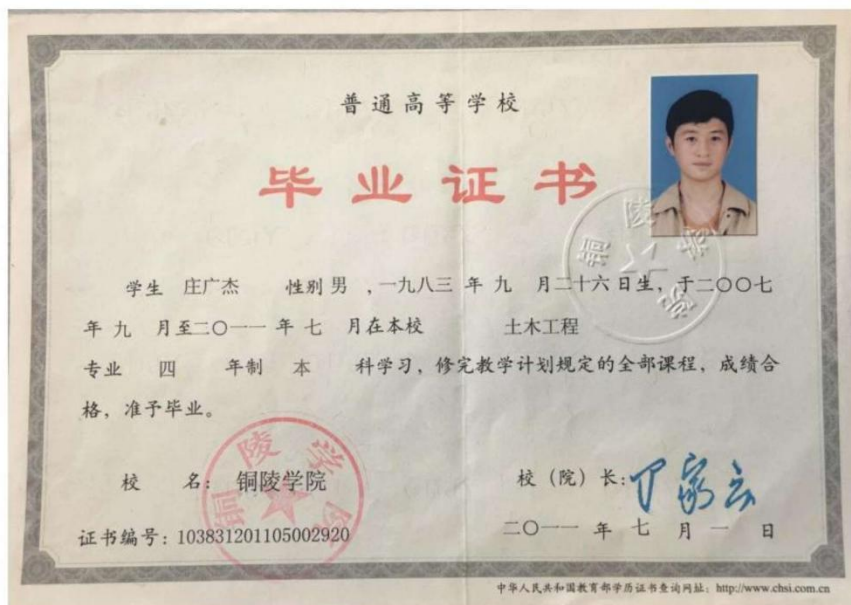 普通高等学校
毕业证书
学生 庄广杰 性别 男 ,一九八三 年 九 月二十六日生，于二〇〇七
年 九 月至二〇一一 年 七 月在本校 土木工程
专业 四 年制 本 科学习，修完教学计划规定的全部课程，成绩合
格，准予毕业。
铜陵学院
铜陵学院
校 名：铜陵学院
校（院）长：丁家云
证书编号：103831201105002920
二〇一一 年 七 月 一 日
中华人民共和国教育部学历证书查询网址：http://www.chsi.com.cn